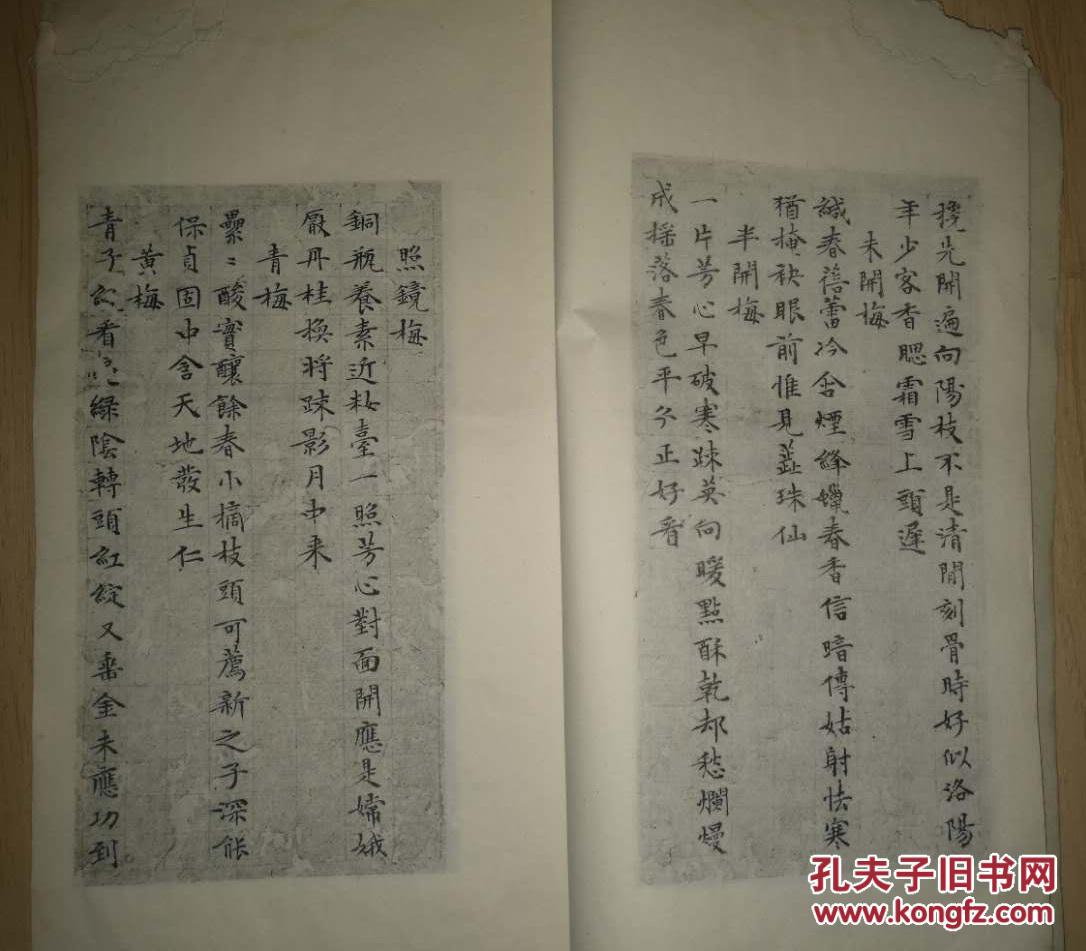 攙先開遍向陽枝不是清閒刻骨時好似洛陽
年少客香腮霜雪上頭遲
未開梅
緘春蓓蕾冷含煙絳蠟春香信暗傳姑射怯寒
猶掩袂眼前惟見蕋珠仙
半開梅
一片芳心早破寒踈英向暖點酥乾却愁爛熳
成摇落春色平分正好看
照鏡梅
銅瓶養素近粧臺一照芳心對面開應是嫦娥
厭丹桂換將踈影月中来
青梅
纍〻酸實釀餘春小摘枝頭可薦新之子深能
保貞固中含天地發生仁
黃梅
青子 看 綠陰轉頭紅綻又垂金未應功到
孔夫子旧书网
www.kongfz.com